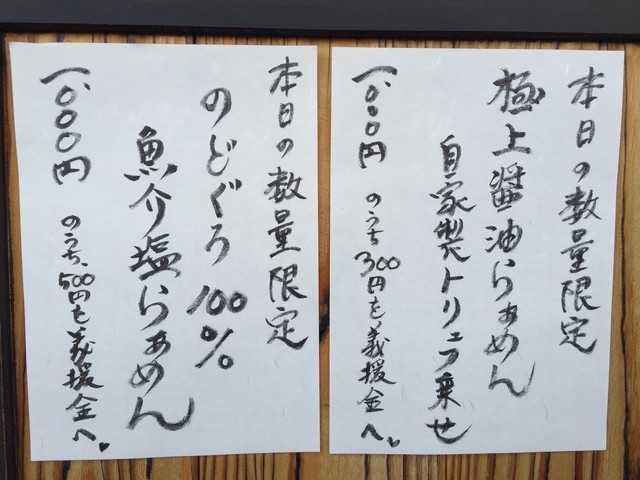 本日の数量限定
極上醤油らぁめん
自家製トリュフ乗せ
一、〇〇〇円 のうち300円を義援金へ。
本日の数量限定
のどぐろ100%
魚介塩らぁめん
一、〇〇〇円 のうち、500円を義援金へ。